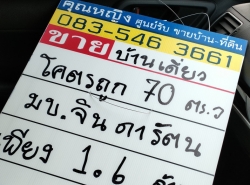 คุณหญิง ศูนย์รับ ขายบ้าน-ที่ดิน
083-546 3661
ขาย บ้านเดี่ยว
โคตรถูก 70 ตร.ว
มบ.จินดารัตน
เพียง 1.6